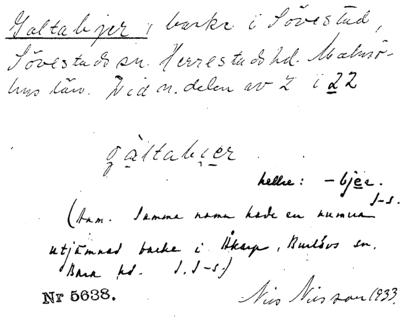 Galtabjer, backe i Sövestad,
Sövestads sn. Herrestads hd. Malmö-
hus län. Vid n. delen av Z i 22
gàltabjer
hellre: -bjer.
J-s.
(Anm. Samma namn hade en numera
utjämnad backe i Åkarp, Burlövs sn.
Bara hd. J. J-s.)
Nr 5638. Nils Nilsson 1933.